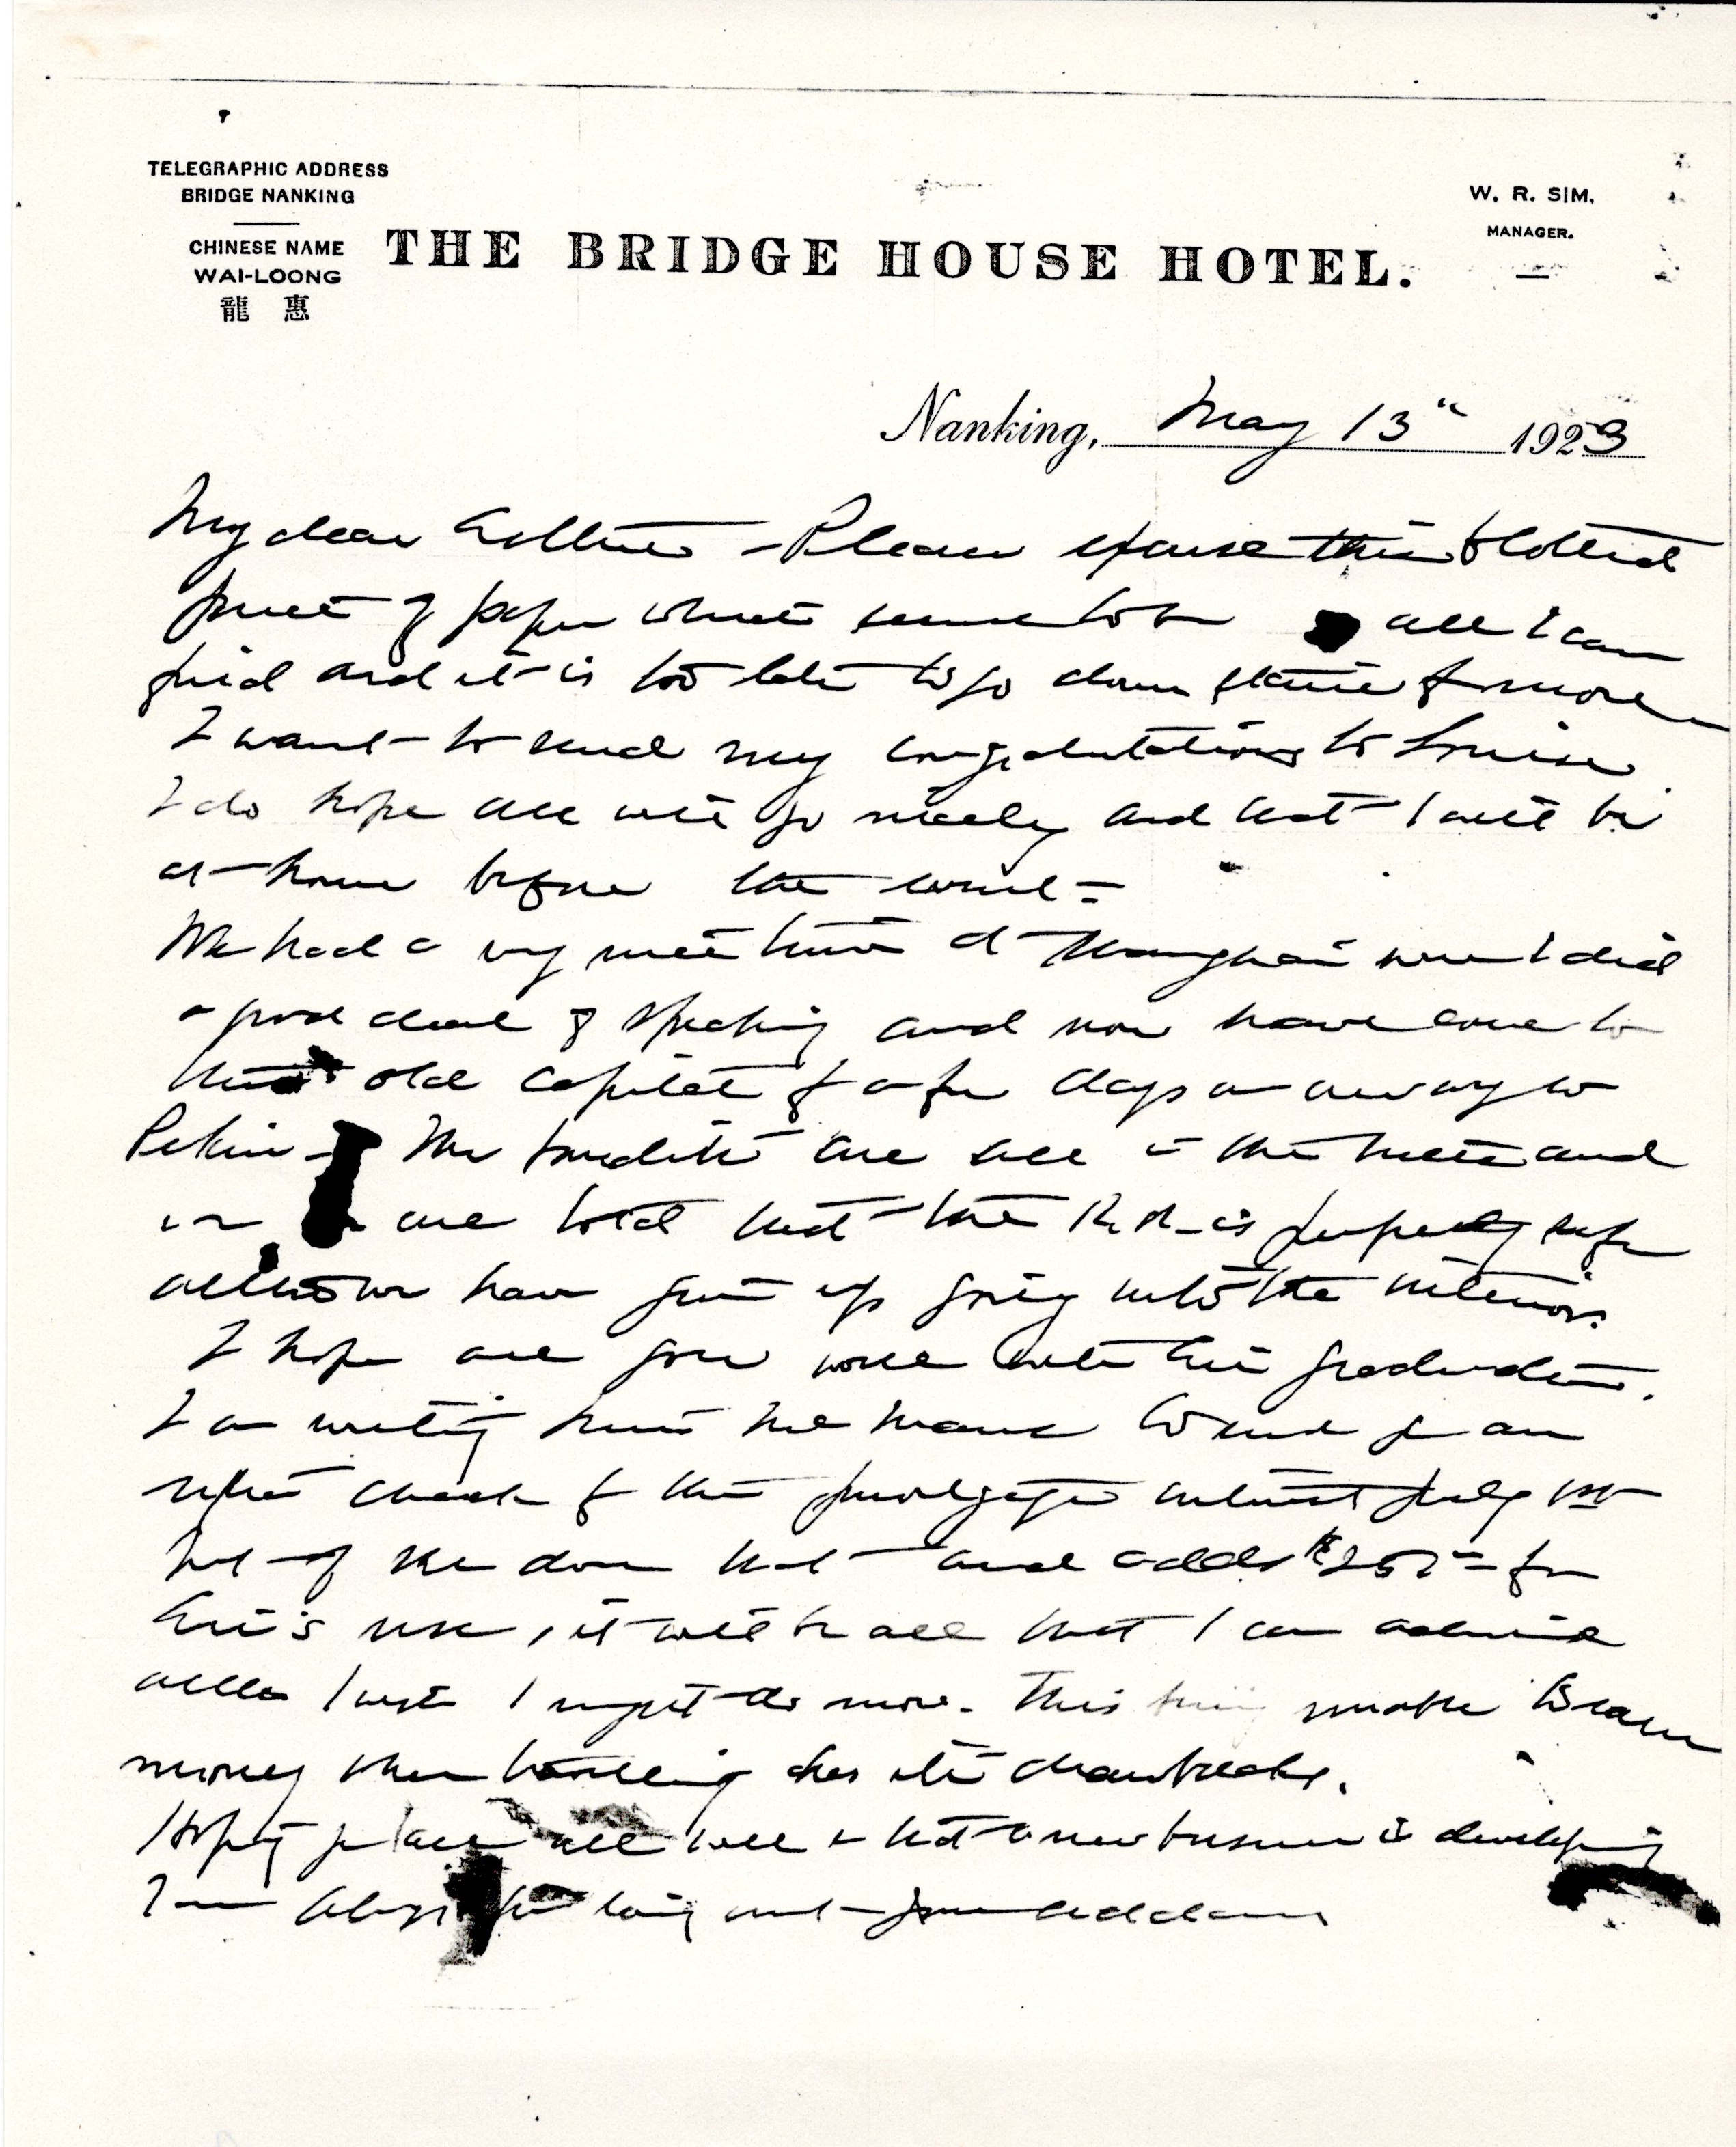 TELEGRAPHIC ADDRESS
BRIDGE NANKING
CHINESE NAME
WAI-LOONG
龍 惠
THE BRIDGE HOUSE HOTEL.
W. R. SIM.
MANAGER.
Nanking, May 13th 1923
My dear - Please excuse this blotted
piece of paper which seems to be all I can
find and it is too late to go down stairs for more
I want to send my congratulations to Louise
I do hope all will go nicely and that I will be
at home before the event -
We had a very nice time at Shanghai where I did
a good deal of speaking and now have come to
this old capital for a few days on our way to
Pekin - The bandits are all in the and
we are told that the R.R. is perfectly safe
altho we have given up going into the interior.
I hope all goes well with graduation.
I am writing to send you an
check for the mortgage interest July 1st
that and add $250 for
use, it will be all that I can
altho I wish I might do more. This to earn
money than travelling has its drawbacks.
Hoping you are all well & that new business is developing
I am